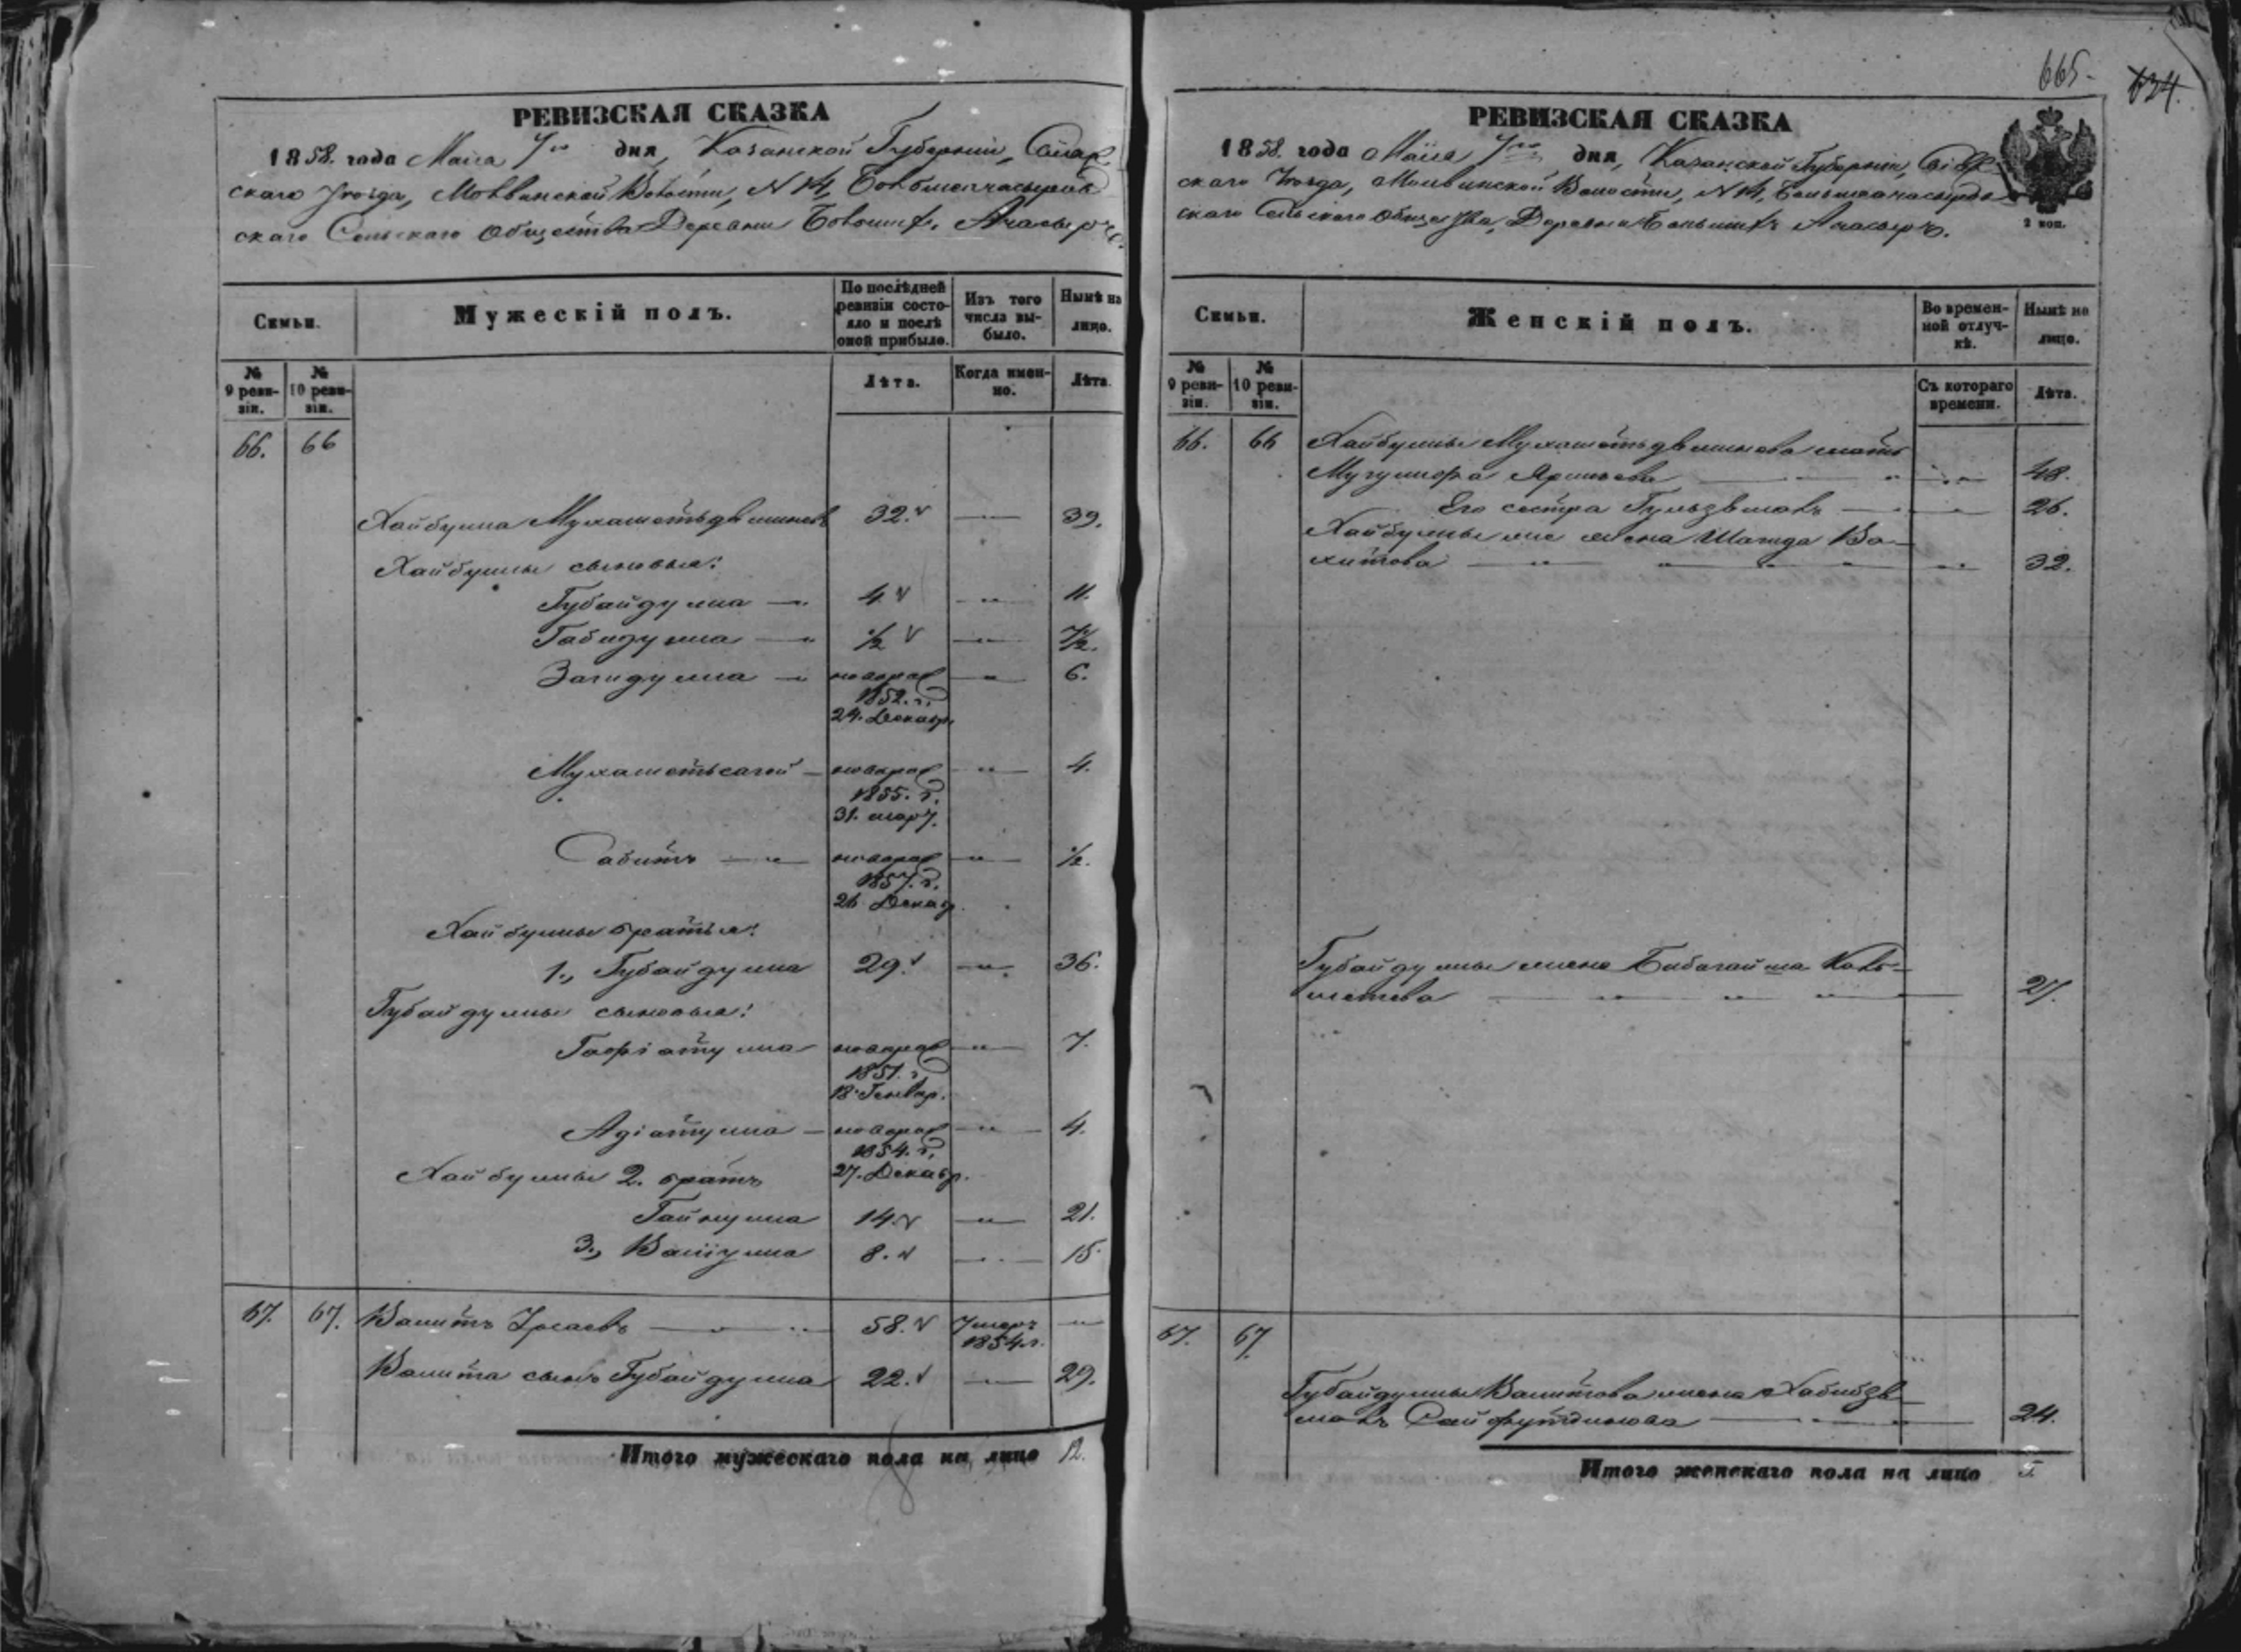 РЕВИЗСКАЯ СКАЗКА
1858. года Маiя 7го дня, Казанской Губернiи,
скаго Уѣзда, Волости, N 14,
скаго Сельскаго Общества Деревни
Семьи.
Мужескiй полъ.
По послѣдней ревизiи состояло и послѣ оной прибыло.
Изъ того числа выбыло.
Нынѣ на лицо.
№ 9 ревизiи.
№ 10 ревизiи.
Лѣта.
Когда именно.
Лѣта
66. 66
Хайбулла Мухаметьдѣминовъ 32. 39.
Хайбуллы сыновья:
Губайдулла 4 11.
Габидулла ½ 7½.
Загидулла новорож 6.
1852. г.
24. Декабр.
Мухаметьсагой новорож 4.
1855. г.
31. март.
Сабитъ новорож ½.
1857. г.
26 Декаб.
Хайбуллы братья:
1., Губайдулла 29. 36.
Губайдуллы сыновья:
Гафiатулла новорож 7.
1851. г.
18. Генвар.
Адiатулла новорож 4.
1854. г.
Хайбуллы 2. братъ 27. Декабр.
Гайнулла 14. 21.
3., Валiулла 8. 15
67. 67. Валитъ 58. Умеръ
1854 г.
Валита сынъ Губайдулла 22. 29.
Итого мужескаго пола на лицо 12.
665.
634.
РЕВИЗСКАЯ СКАЗКА
1858. года Маiя 7го дня, Казанской Губернiи,
скаго Уѣзда, Волости, N 14,
скаго Сельскаго Общества, Деревни
2 коп.
Семьи.
Женскiй полъ.
Во временной отлучкѣ.
Нынѣ на лицо.
№ 9 ревизiи.
№ 10 ревизiи.
Съ котораго времени.
Лѣта.
66. 66 Хайбуллы Мухаметьдѣминова мать
48.
Его сестра 26.
Хайбуллы жена Ва-
хитова 32.
Губайдуллы жена
27.
67. 67
Губайдуллы Валитова жена Хабибзѣ-
Сайфутдинова 24.
Итого женскаго пола на лицо 5.